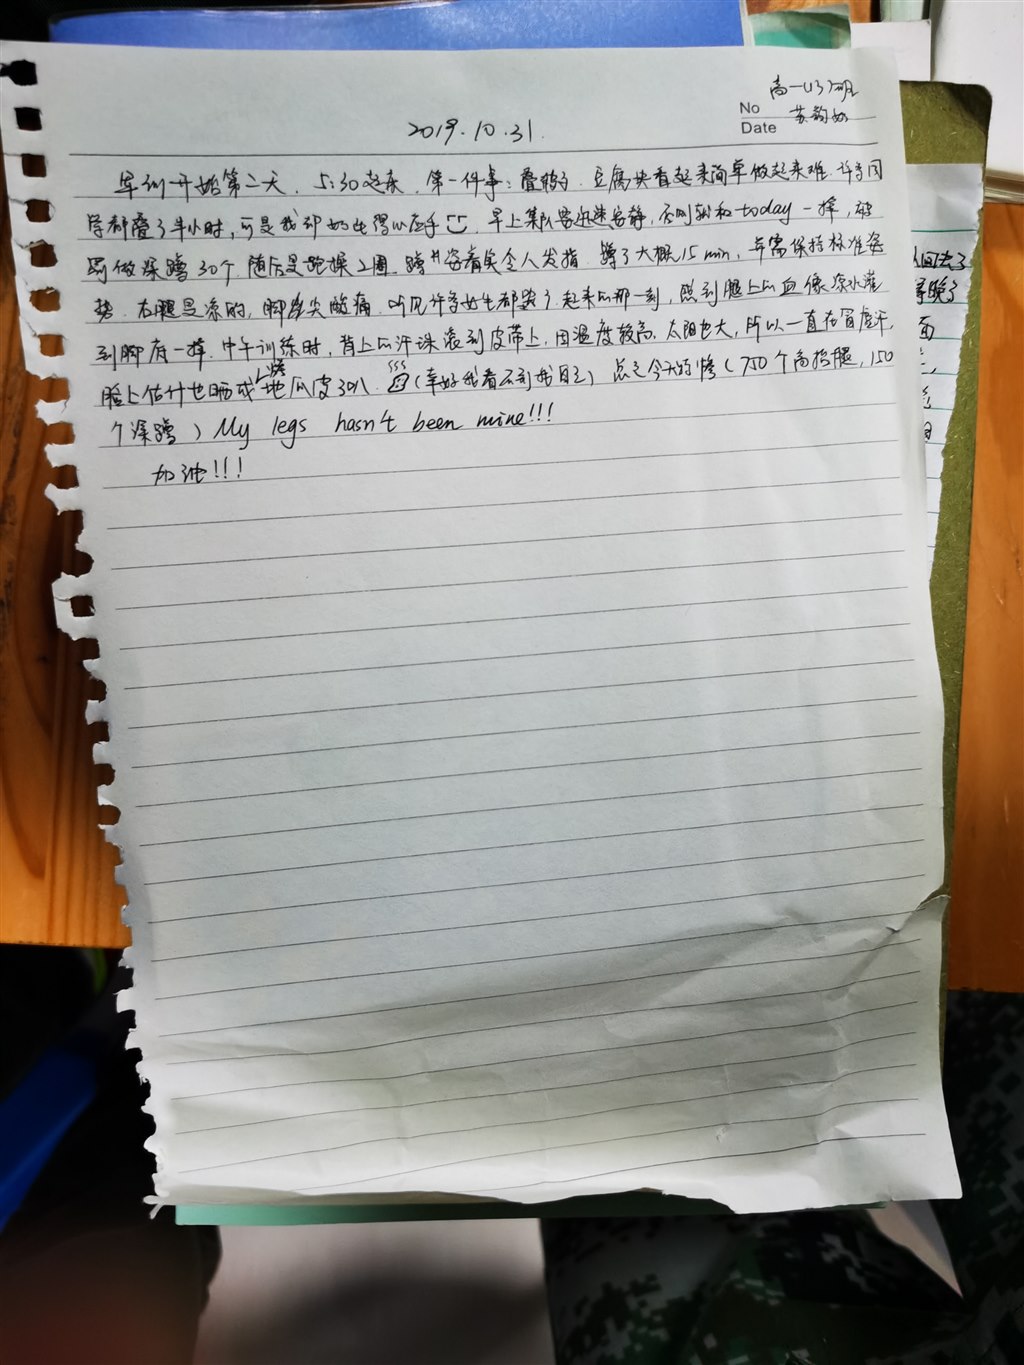 高一(13)班
No 苏韵如
Date
2019.10.31.
军训开始第二天，5:30起床，第一件事：叠被子，豆腐块看起来简单做起来难，许多同
学都叠了半小时，可是我却如此得心应手 早上集队要迅速安静，否则就和today一样，被
罚做深蹲30个，随后是跑操2圈，蹲姿着实令人发指，蹲了大概15min，并需保持标准姿
势，右腿是凉的，脚尖酸痛，听见许多女生都哭了，起来的那一刻，感到腿上的血像凉水灌
到脚底一样，中午训练时，背上的汗珠滚到皮带上，因温度较高，太阳也大，所以一直在冒虚汗，
脸上估计也晒成烤地瓜皮了 (幸好我看不到我自己) 总之今天特惨（750个高抬腿，150
个深蹲）My legs hasn't been mine!!!
加油!!!
回去了
等晚了
面